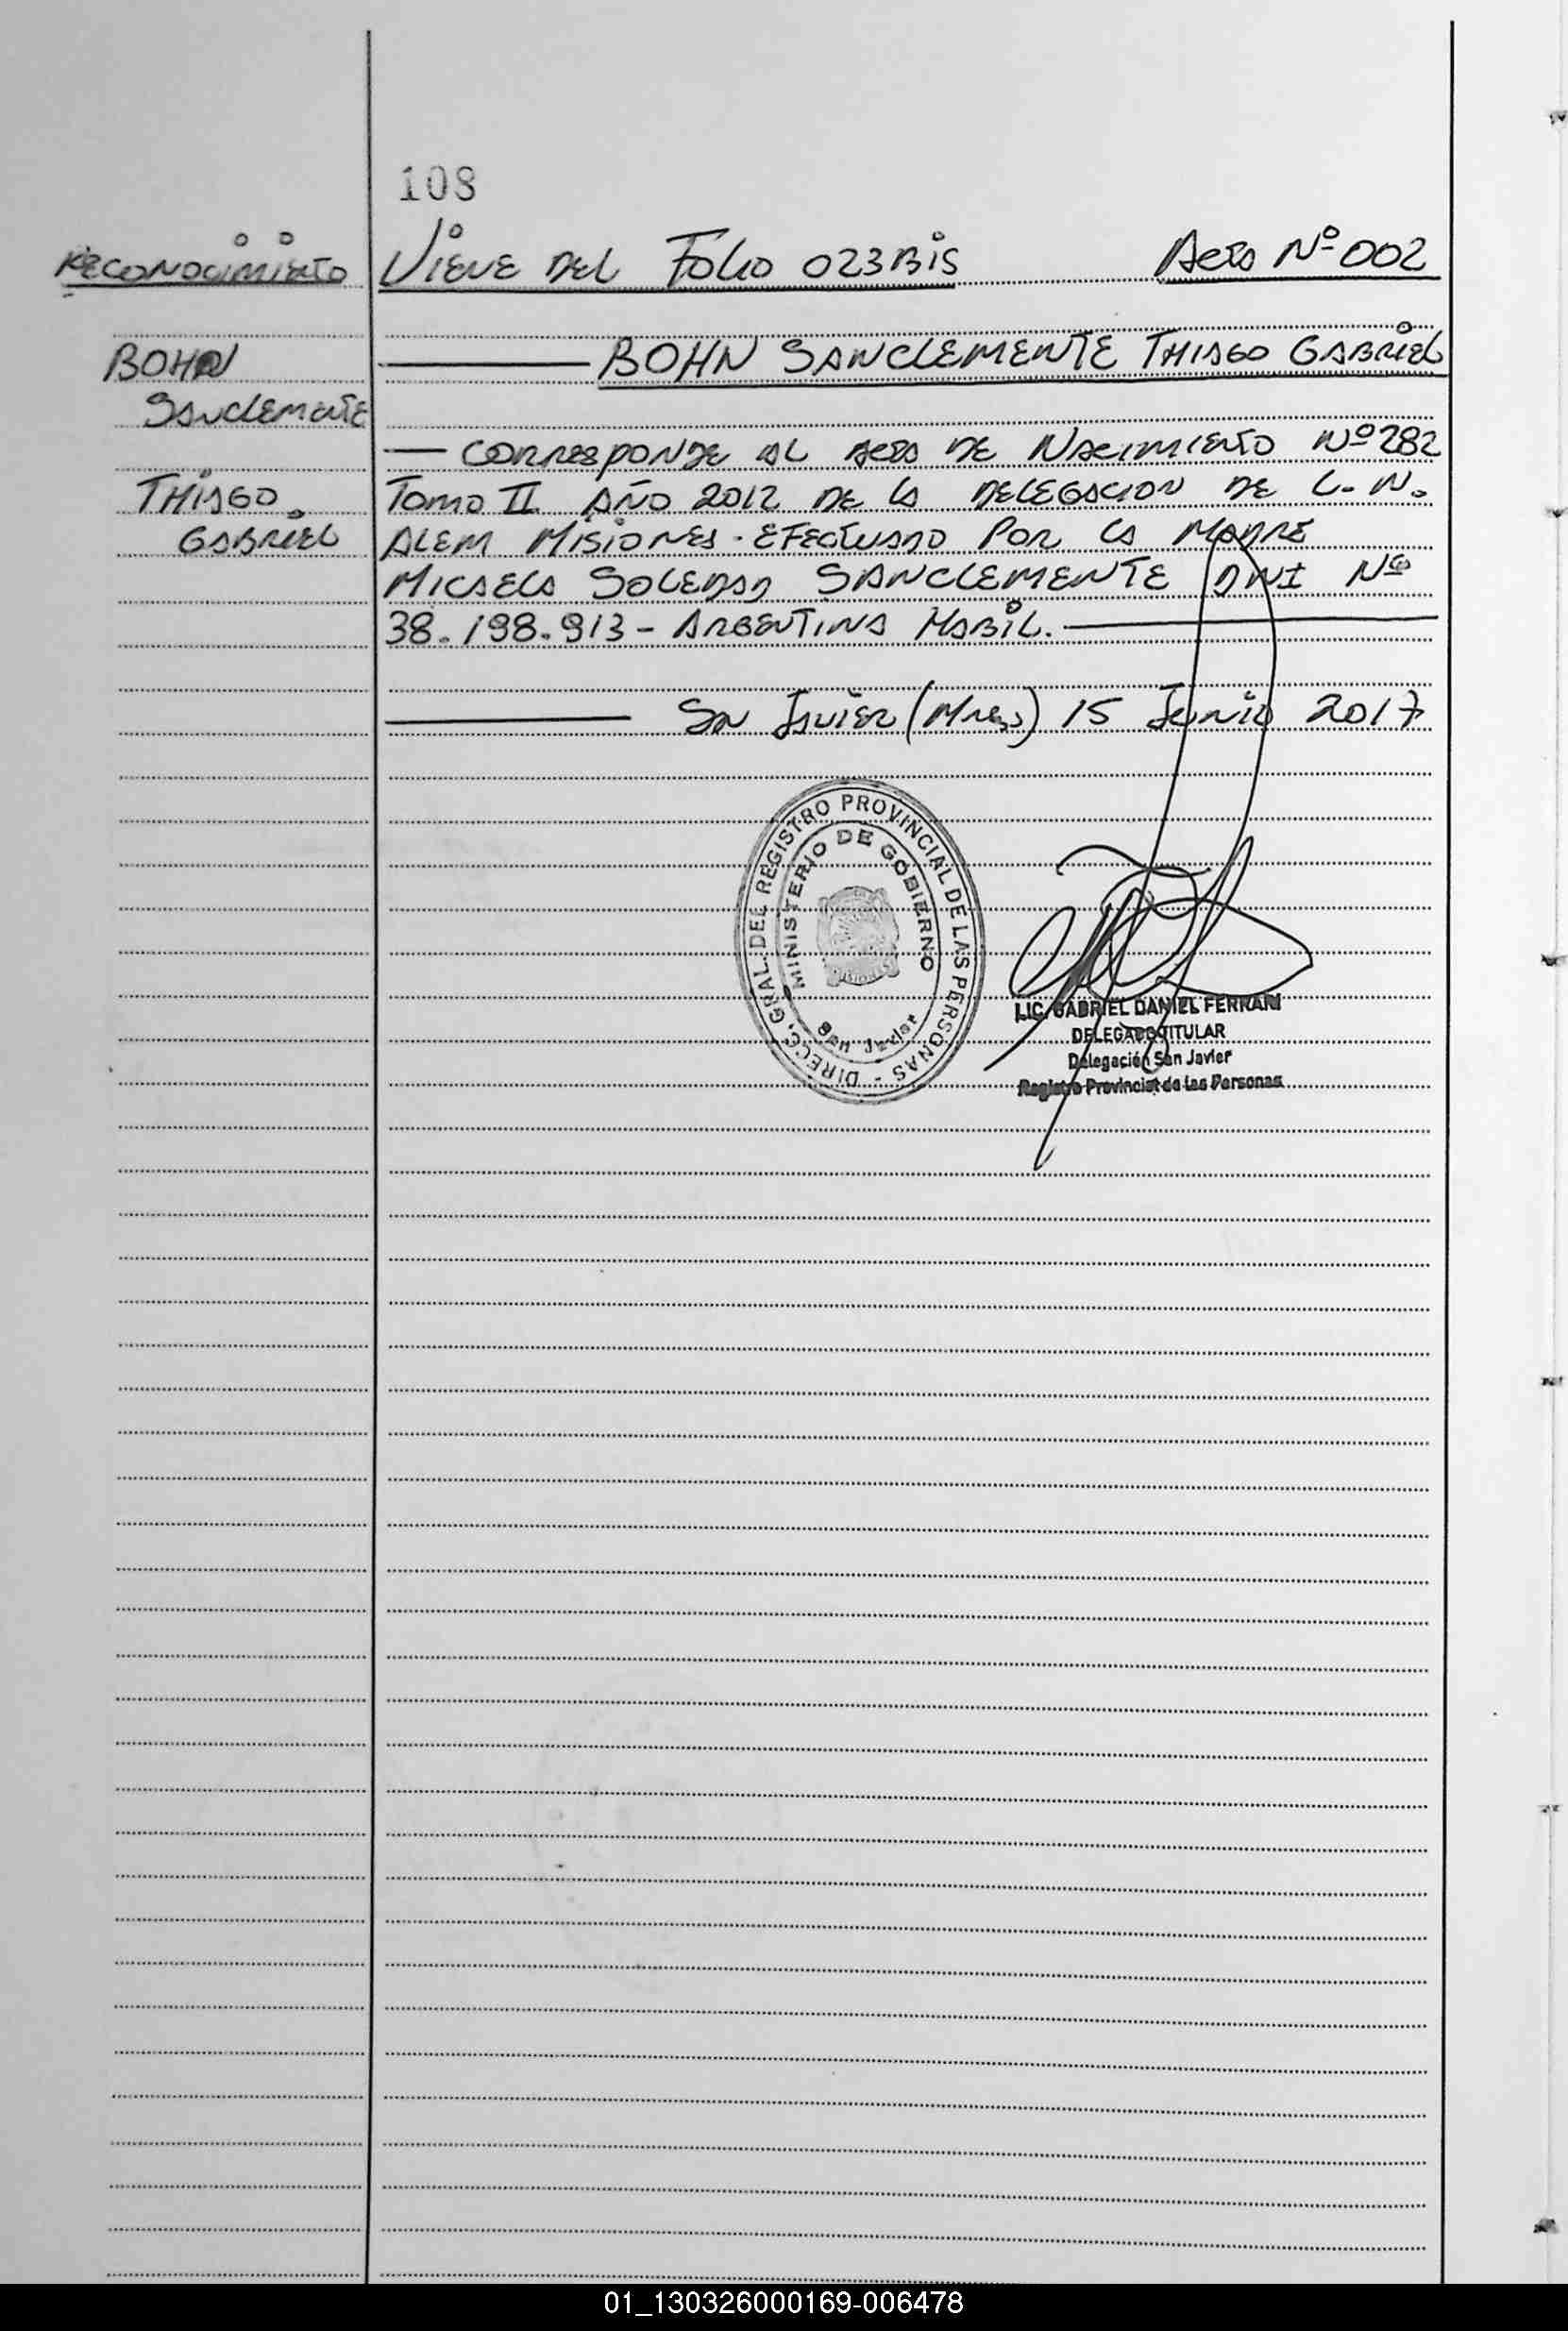 108
RECONOCIMIENTO
VIENE DEL FOLIO 023BIS ACTA Nº 002
BOHN
SANCLEMENTE
THIAGO
GABRIEL
BOHN SANCLEMENTE THIAGO GABRIEL
CORRESPONDE AL ACTA DE NACIMIENTO Nº 282
TOMO II AÑO 2012 DE LA DELEGACION DE L. N.
ALEM MISIONES. EFECTUADO POR LA MADRE
MICAELA SOLEDAD SANCLEMENTE DNI Nº
38.198.913 - ARGENTINA HABIL.
SAN JAVIER (Mnes) 15 JUNIO 2017
DIRECC. GRAL. DEL REGISTRO PROVINCIAL DE LAS PERSONAS -
MINISTERIO DE GOBIERNO
MISIONES
San Javier
LIC. GABRIEL DANIEL FERRARI
DELEGADO TITULAR
Delegación San Javier
Registro Provincial de las Personas
01_130326000169-006478